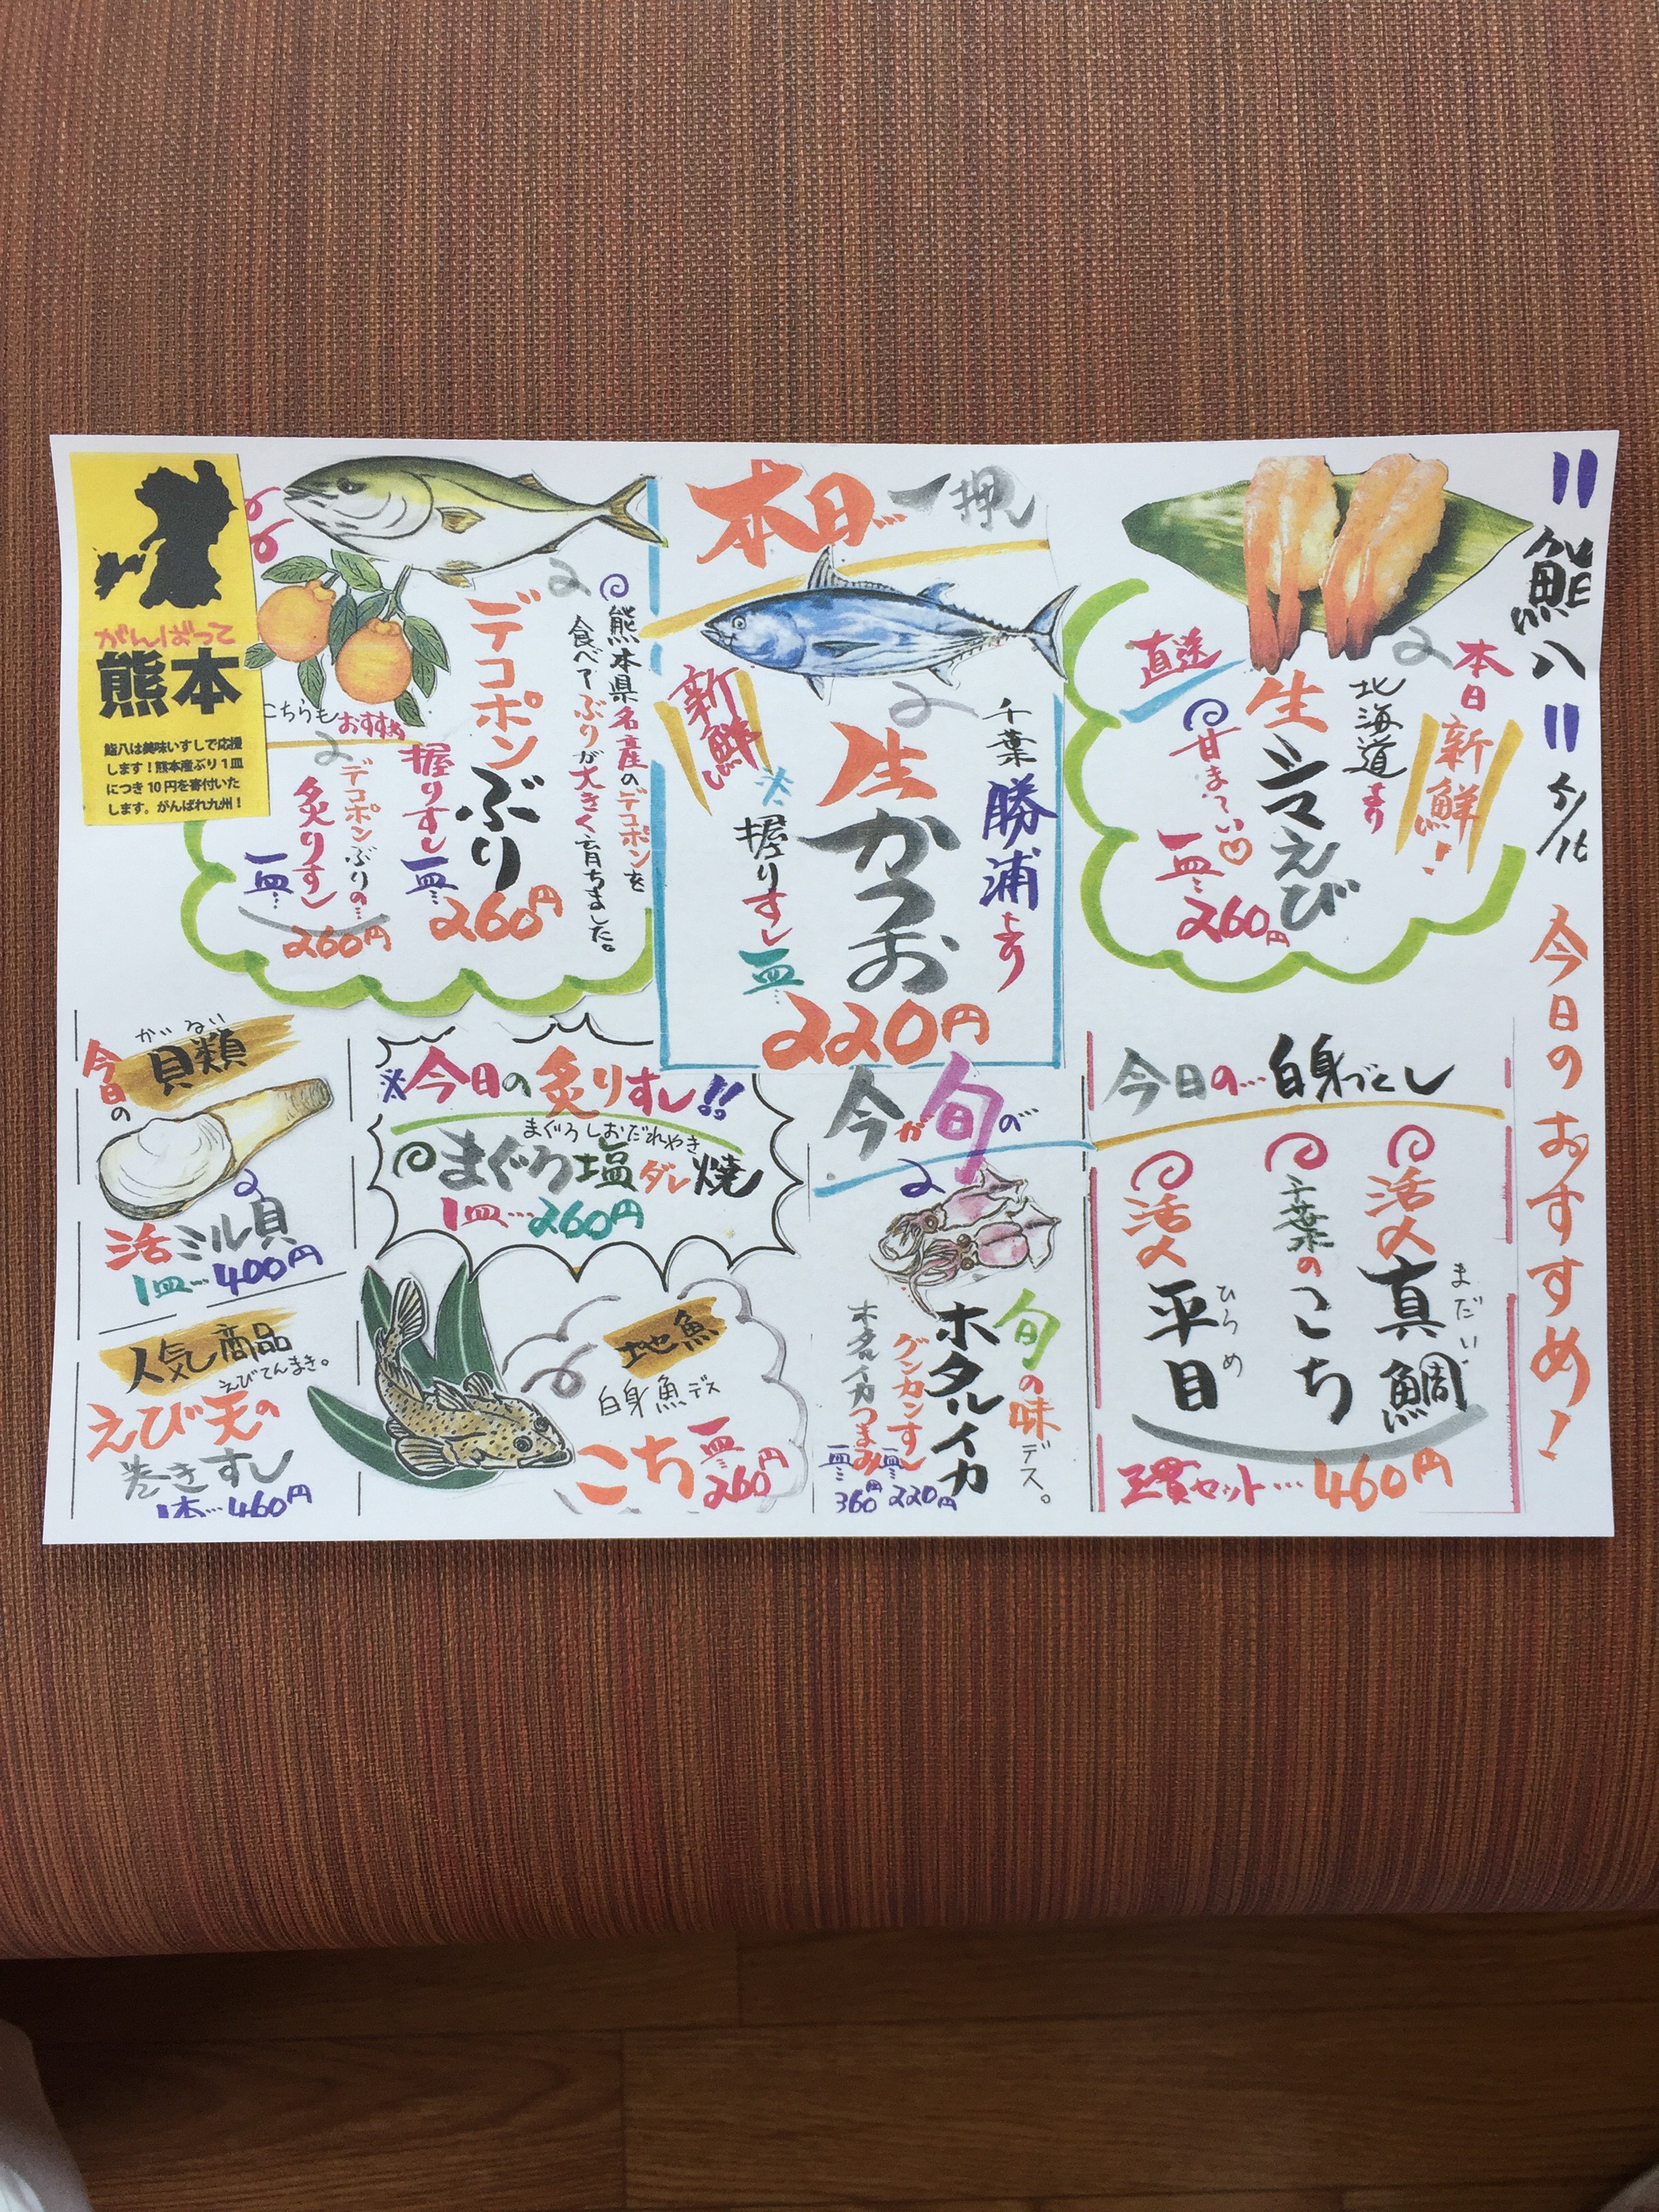 〃鮨八〃 5/16 今日のおすすめ!
本日
新鮮!
北海道より
生シマえび
直送
甘ま〜い♡
一皿…260円
本日…一押
千葉
勝浦より
生かつお
新鮮
※握りすし
一皿…220円
熊本県名産のデコポンを
食べてぶりが大きく育ちました。
デコポンぶり
握りすし
一皿…260円
こちらもおすすめ
デコポンぶりの…
炙りすし
一皿…260円
がんばって
熊本
鮨八は美味いすしで応援
します!熊本産ぶり1皿
につき10円を寄付いた
します。がんばれ九州!
今日の…白身づくし
活〆真鯛
まだい
千葉のこち
活〆平目
ひらめ
三貫セット…460円
今が旬の
旬の味デス。
ホタルイカ
グンカンすし
一皿…220円
ホタルイカつまみ
一皿…360円
※今日の炙りすし!!
まぐろしおだれやき
まぐろ塩ダレ焼
1皿…260円
地魚
白身魚デス
こち
一皿…260円
今日の
かいるい
貝類
活ミル貝
1皿…400円
人気商品
えびてんまき。
えび天の
巻きすし
1本…460円